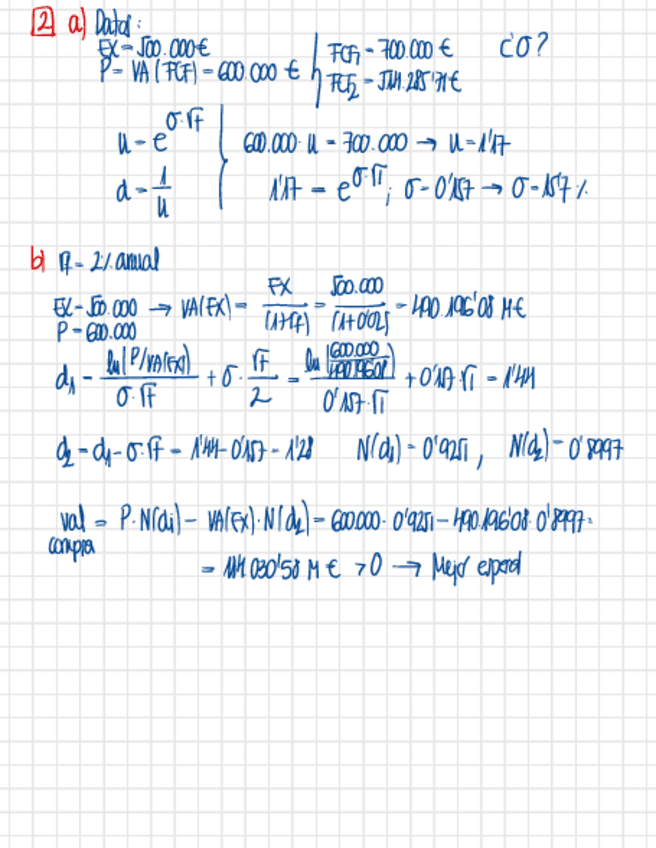 2 a) Datos:
EX = 500.000 €
P = VA (FCF) = 600.000 €
FCF1 = 700.000 €
FCF2 = 514.285'71 €
¿σ?
u = e^σ·√t
d = 1/u
600.000 · u = 700.000 → u = 1'17
1'17 = e^σ·√1; σ = 0'157 → σ = 15'7 %
b) rf = 2% anual
EX = 500.000 → VA(EX) = EX/(1+rf) = 500.000/(1+0'02) = 490.196'08 M€
P = 600.000
d1 = ln(P/VA(EX))/σ·√t + σ·√t/2 = ln(600.000/490.196'08)/0'157·√1 + 0'157·√1 = 1'44
d2 = d1 - σ·√t = 1'44 - 0'157 = 1'28 N(d1) = 0'9251, N(d2) = 0'8997
val = P·N(d1) - VA(EX)·N(d2) = 600.000 · 0'9251 - 490.196'08 · 0'8997 =
compra
= 114.030'58 M € > 0 → Mejor esperar